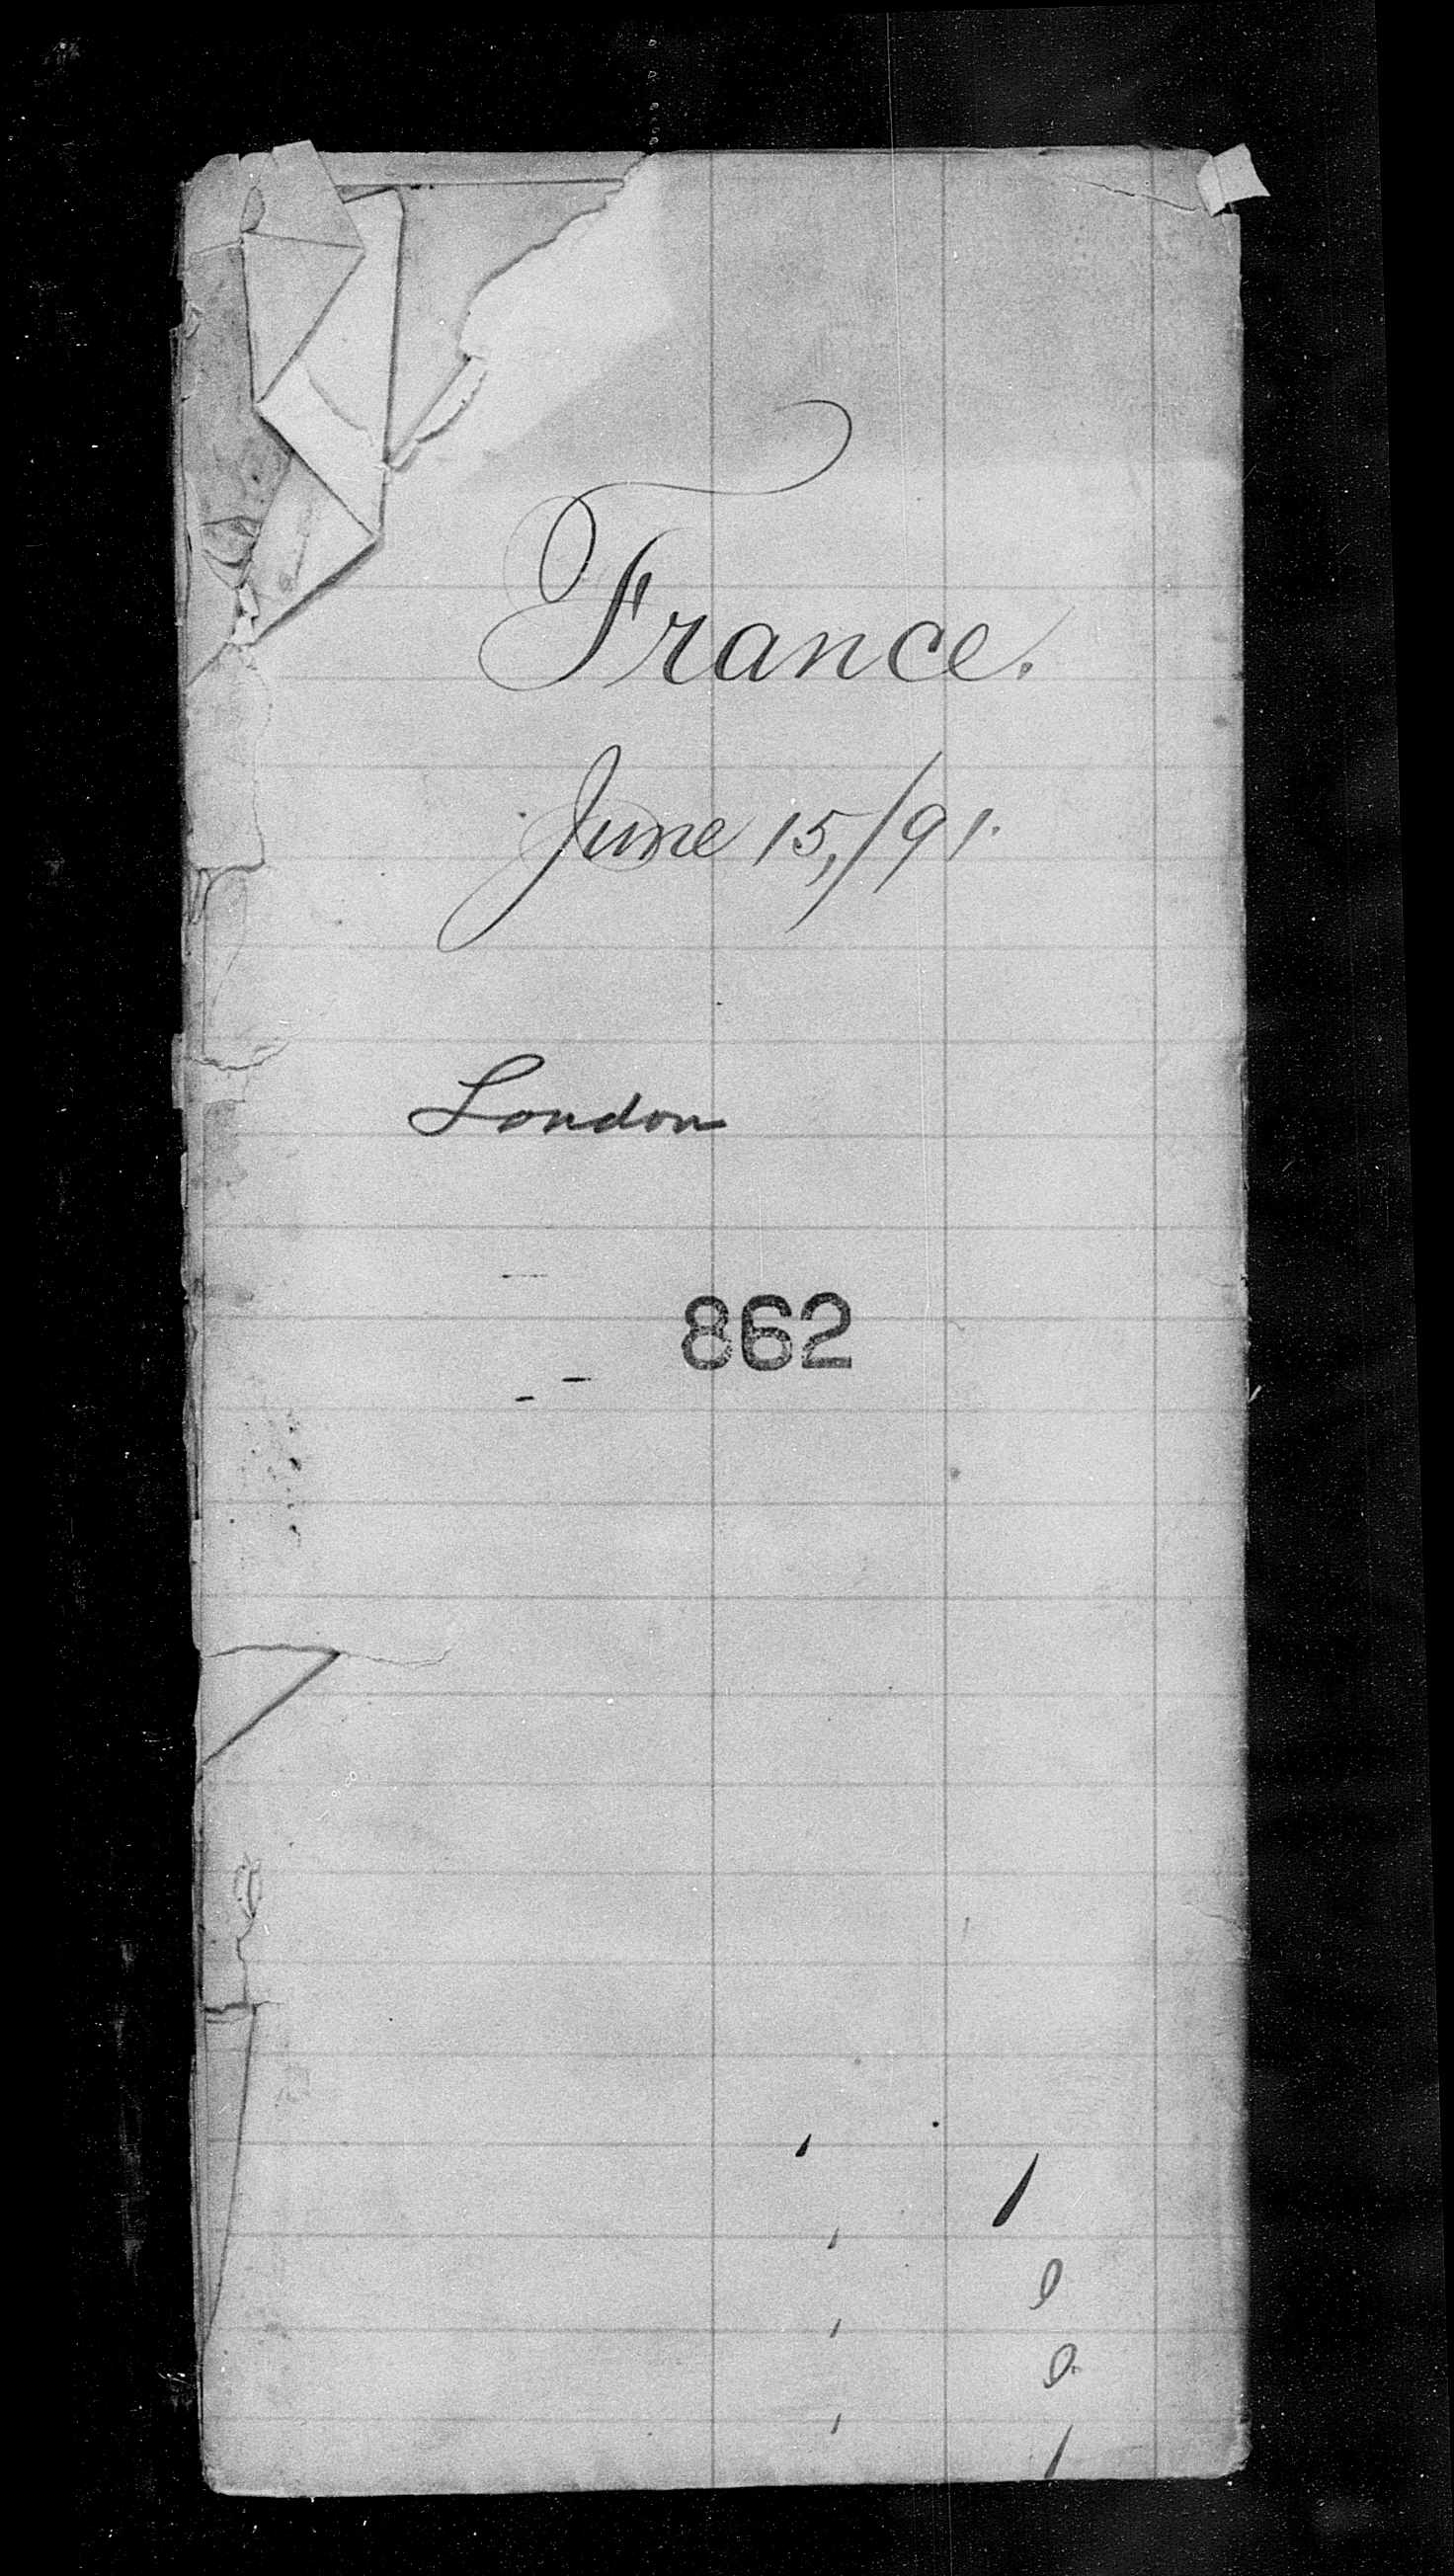 France.
June 15,/91.
London
862